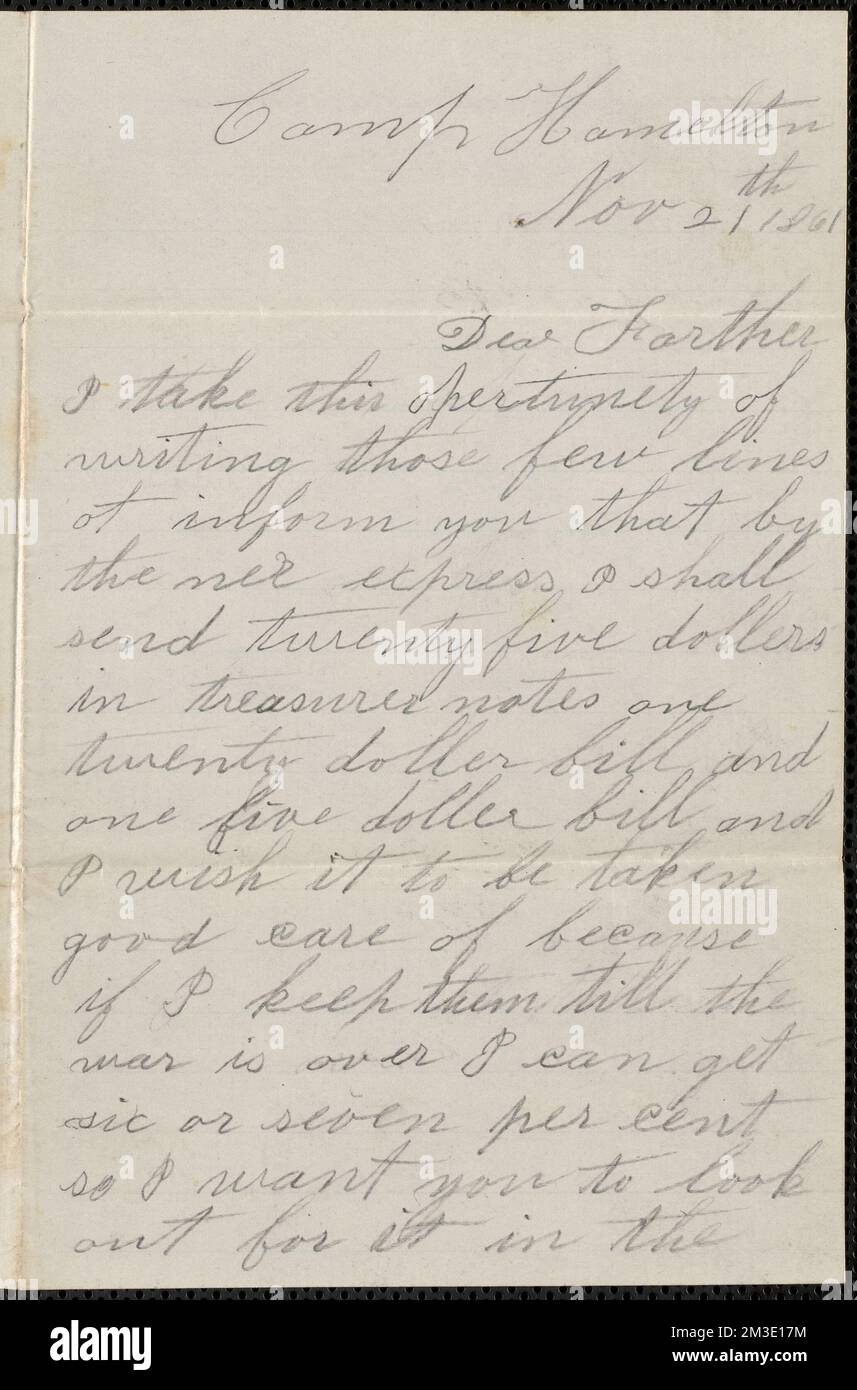 Camp Hamelton
Nov 21th 1861
Dear Farther
I take this opertunety of
writing those few lines
ot inform you that by
the nex express I shall
send twenty five dollers
in treasurer notes one
twenty doller bill and
one five doller bill and
I wish it to be taken
good care of because
if I keep them till the
war is over I can get
sic or seven per cent
so I want you to look
out for it in the
alamy
alamy
Image ID: 2M3E17M
www.alamy.com